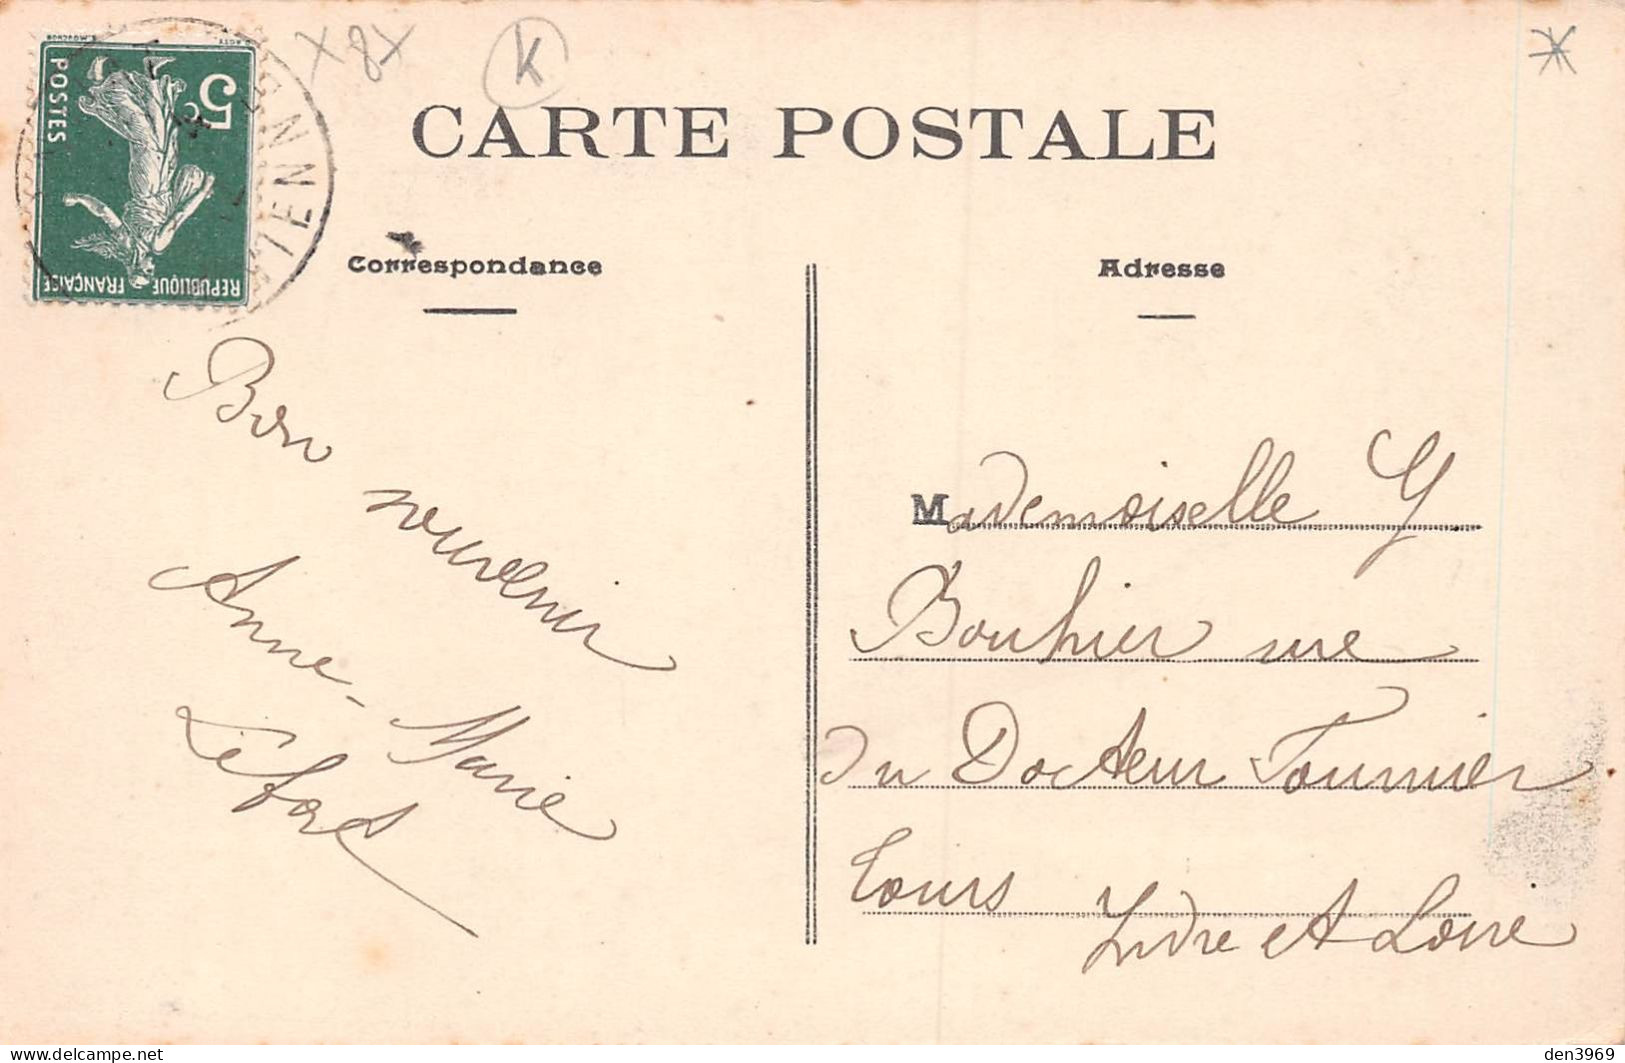 E. MOUCHON
POSTES
5c
REPUBLIQUE FRANÇAISE
X 8X
K
CARTE POSTALE
Correspondance
Adresse
Bon
souvenir
Anne-Marie
Lefort
Mademoiselle G
Bouhier rue
du Docteur Fournier
Tours
Indre et Loire
den3969